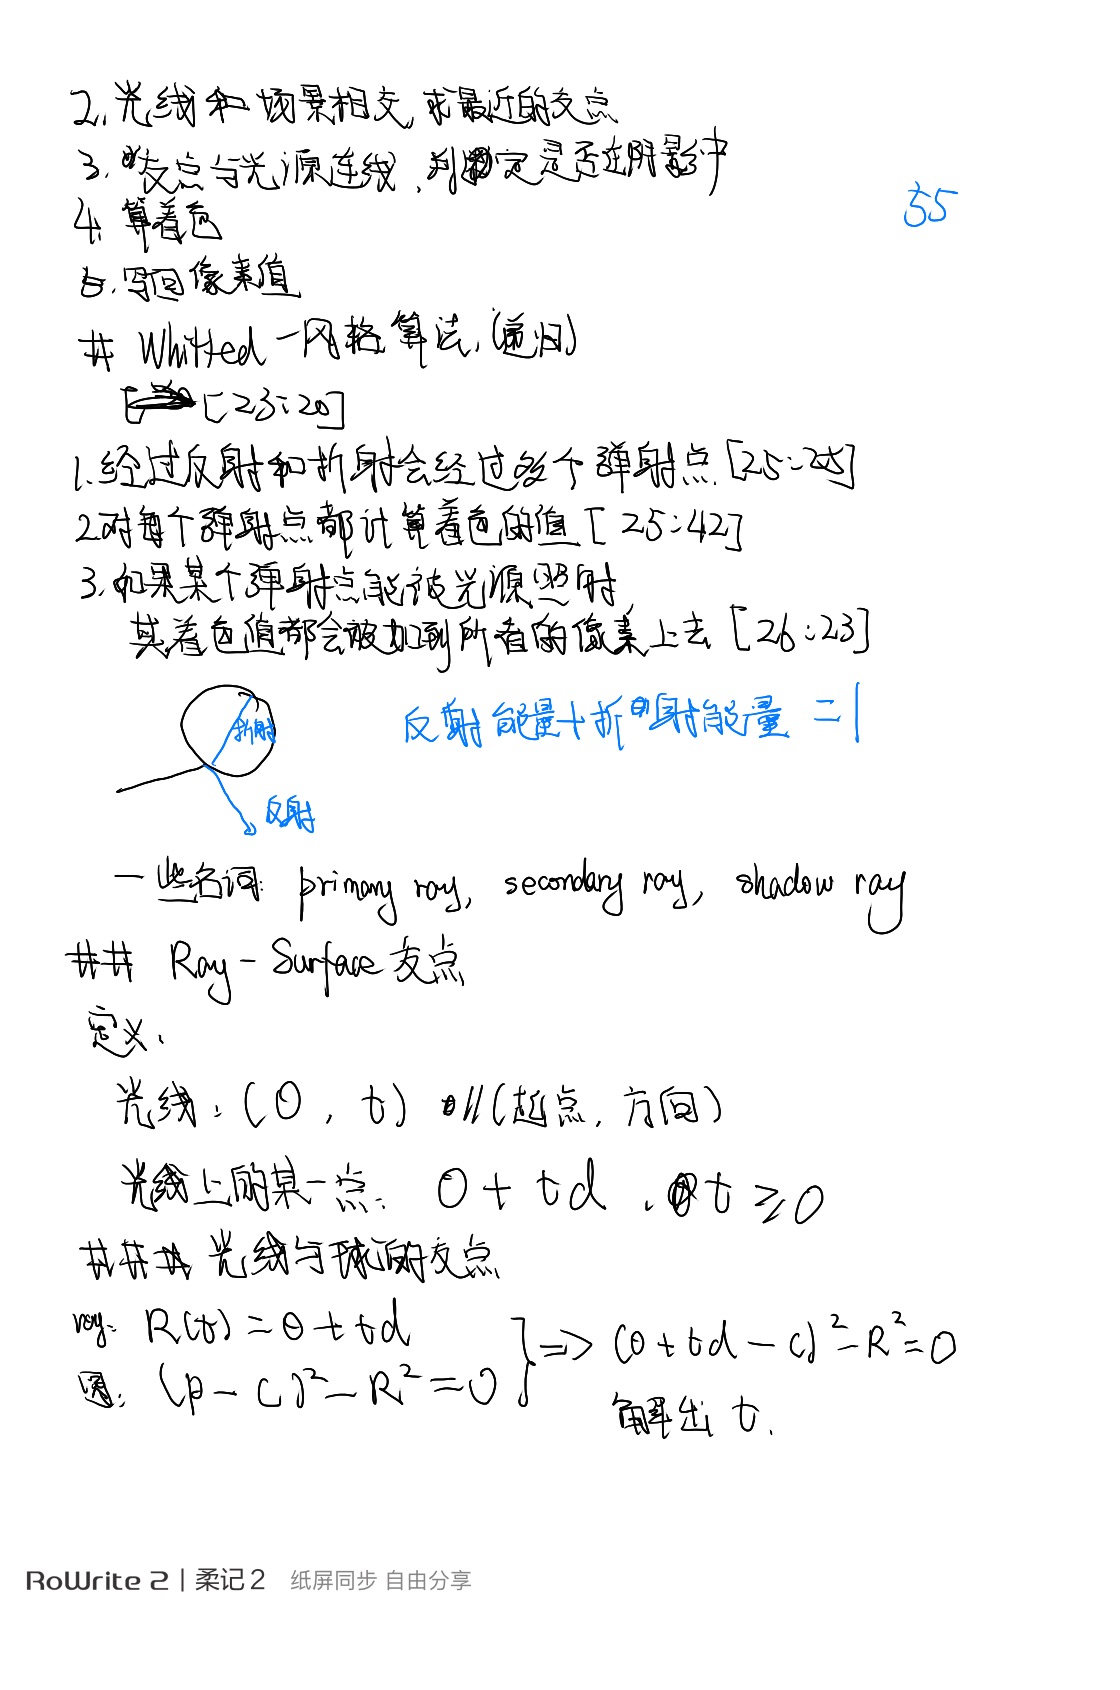 2.光线和场景相交,求最近的交点
3.交点与光源连线,判定是否在阴影中
55
4.算着色
5.写回像素值
# Whitted-风格算法,(递归)
[23:20]
1.经过反射和折射会经过多个弹射点[25:25]
2.对每个弹射点都计算着色的值[25:42]
3.如果某个弹射点能被光源照射,
其着色值都会被加到所有的像素上去[26:23]
反射能量+折射能量=1
折射
反射
一些名词: primary ray, secondary ray, shadow ray
## Ray-Surface 交点
定义:
光线:(O, t) //(起点,方向)
光线上的某一点: O+td, t≥0
### 光线与球面的交点
ray: R(t)=O+td
圆: (p-c)²-R²=0
} => (O+td-c)²-R²=0
解出 t.
RoWrite 2 | 柔记2 纸屏同步 自由分享